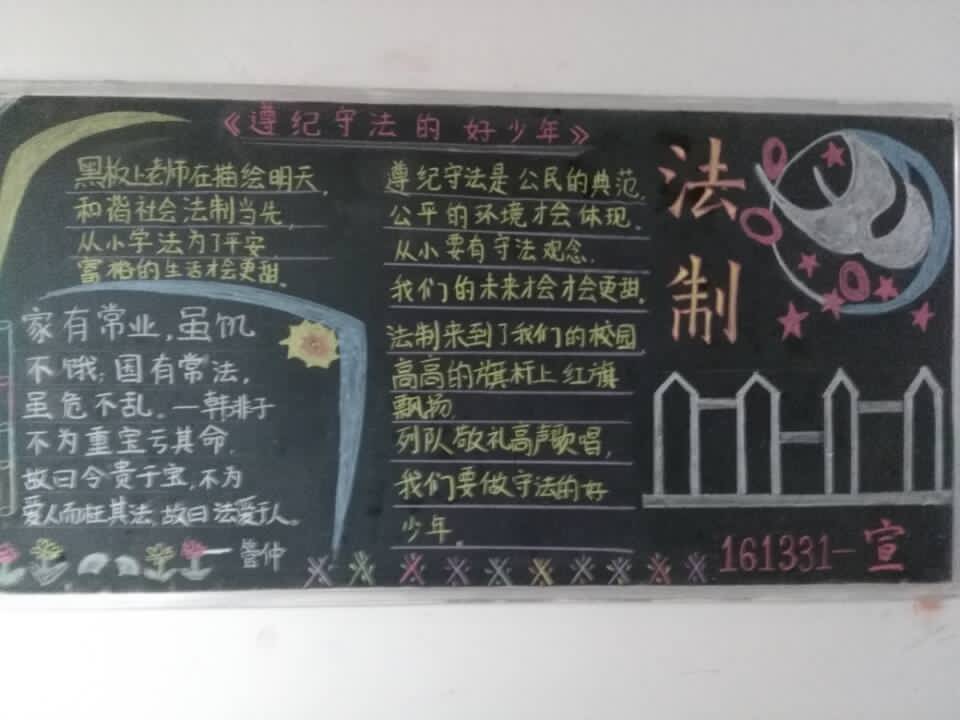 《遵纪守法的 好少年》
黑板上老师在描绘明天,
和谐社会法制当先,
从小学法为了平安
富裕的生活才会更甜.
家有常业,虽饥
不饿;国有常法,
虽危不乱。—韩非子
不为重宝亏其命.
故曰令贵于宝,不为
爱人而枉其法,故曰法爱于人。
—管仲
遵纪守法是公民的典范.
公平的环境才会体现.
从小要有守法观念.
我们的未来才会才会更甜.
法制来到了我们的校园
高高的旗杆上红旗
飘扬
列队敬礼高声歌唱,
我们要做守法的好
少年。
法
制
161331-宣